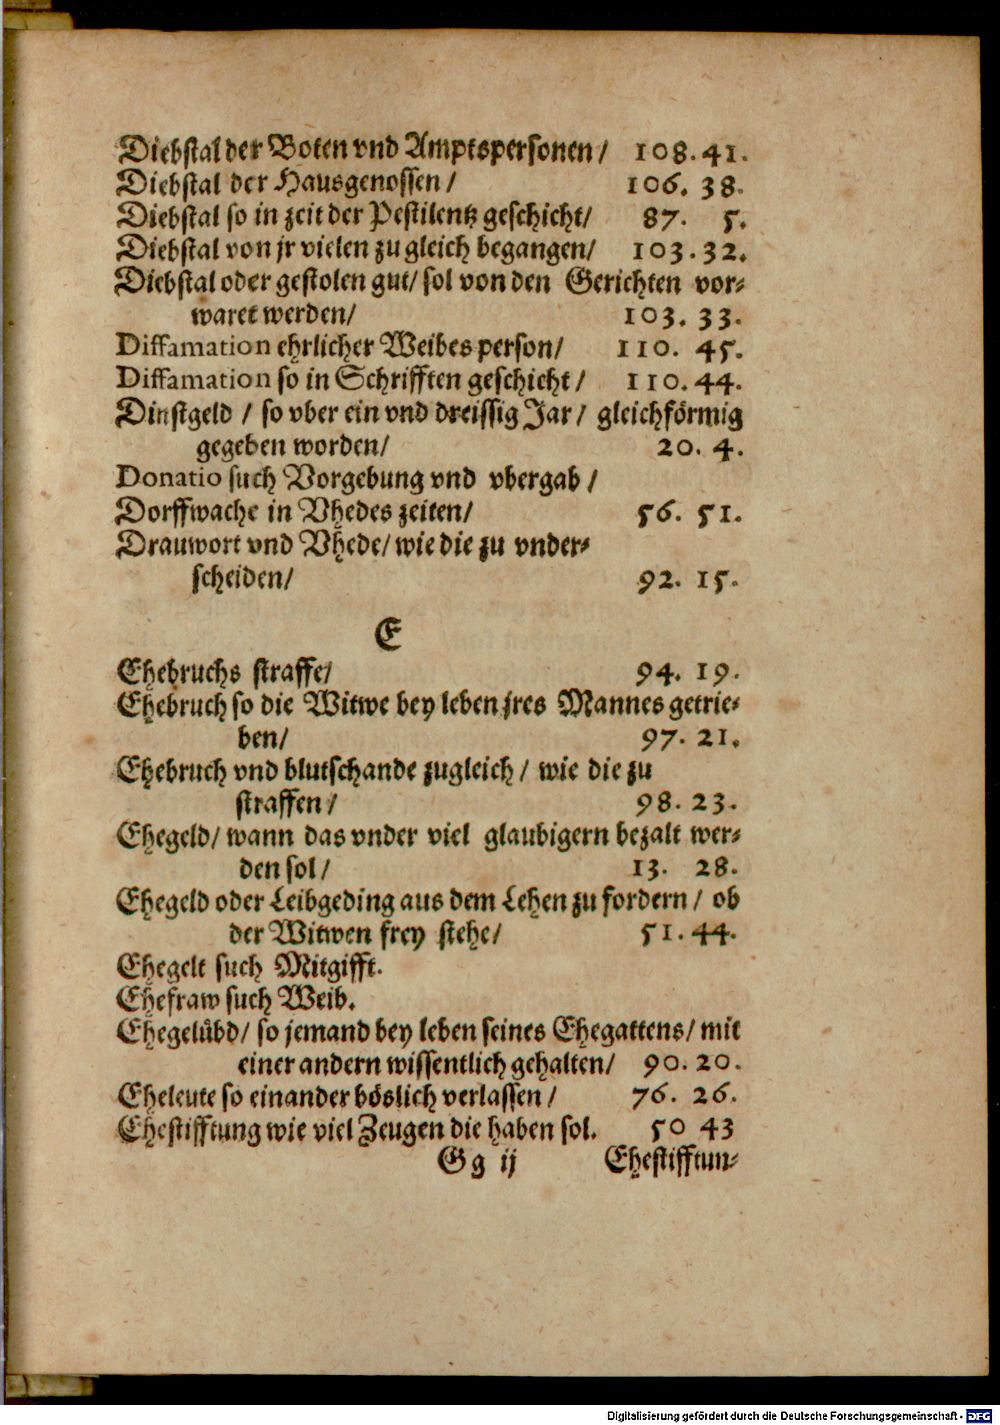 Diebstal der Boten vnd Amptspersonen / 108. 41.
Diebstal der Hausgenossen / 106. 38.
Diebstal so in zeit der Pestilentz geschicht/ 87. 5.
Diebstal von jr vielen zu gleich begangen/ 103. 32.
Diebstal oder gestolen gut/ sol von den Gerichten vor-
waret werden/ 103. 33.
Diffamation ehrlicher Weibes person/ 110. 45.
Diffamation so in Schrifften geschicht / 110. 44.
Dinstgeld / so vber ein vnd dreissig Jar / gleichförmig
gegeben worden/ 20. 4.
Donatio such Vorgebung vnd vbergab /
Dorffwache in Vhedes zeiten/ 56. 51.
Drauwort vnd Vhede/ wie die zu vnder-
scheiden/ 92. 15.
E
Ehebruchs straffe/ 94. 19.
Ehebruch so die Witwe bey leben jres Mannes getrie-
ben/ 97. 21.
Ehebruch vnd blutschande zugleich / wie die zu
straffen / 98. 23.
Ehegeld/ wann das vnder viel glaubigern bezalt wer-
den sol / 13. 28.
Ehegeld oder Leibgeding aus dem Lehen zu fordern / ob
der Witwen frey stehe/ 51. 44.
Ehegelt such Mitgifft.
Ehefraw such Weib.
Ehegelübd/ so jemand bey leben seines Ehegattens/ mit
einer andern wissentlich gehalten/ 90. 20.
Eheleute so einander böslich verlassen / 76. 26.
Ehestifftung wie viel Zeugen die haben sol. 50 43
Gg ij Ehestifftun-
Digitalisierung gefördert durch die Deutsche Forschungsgemeinschaft - DFG